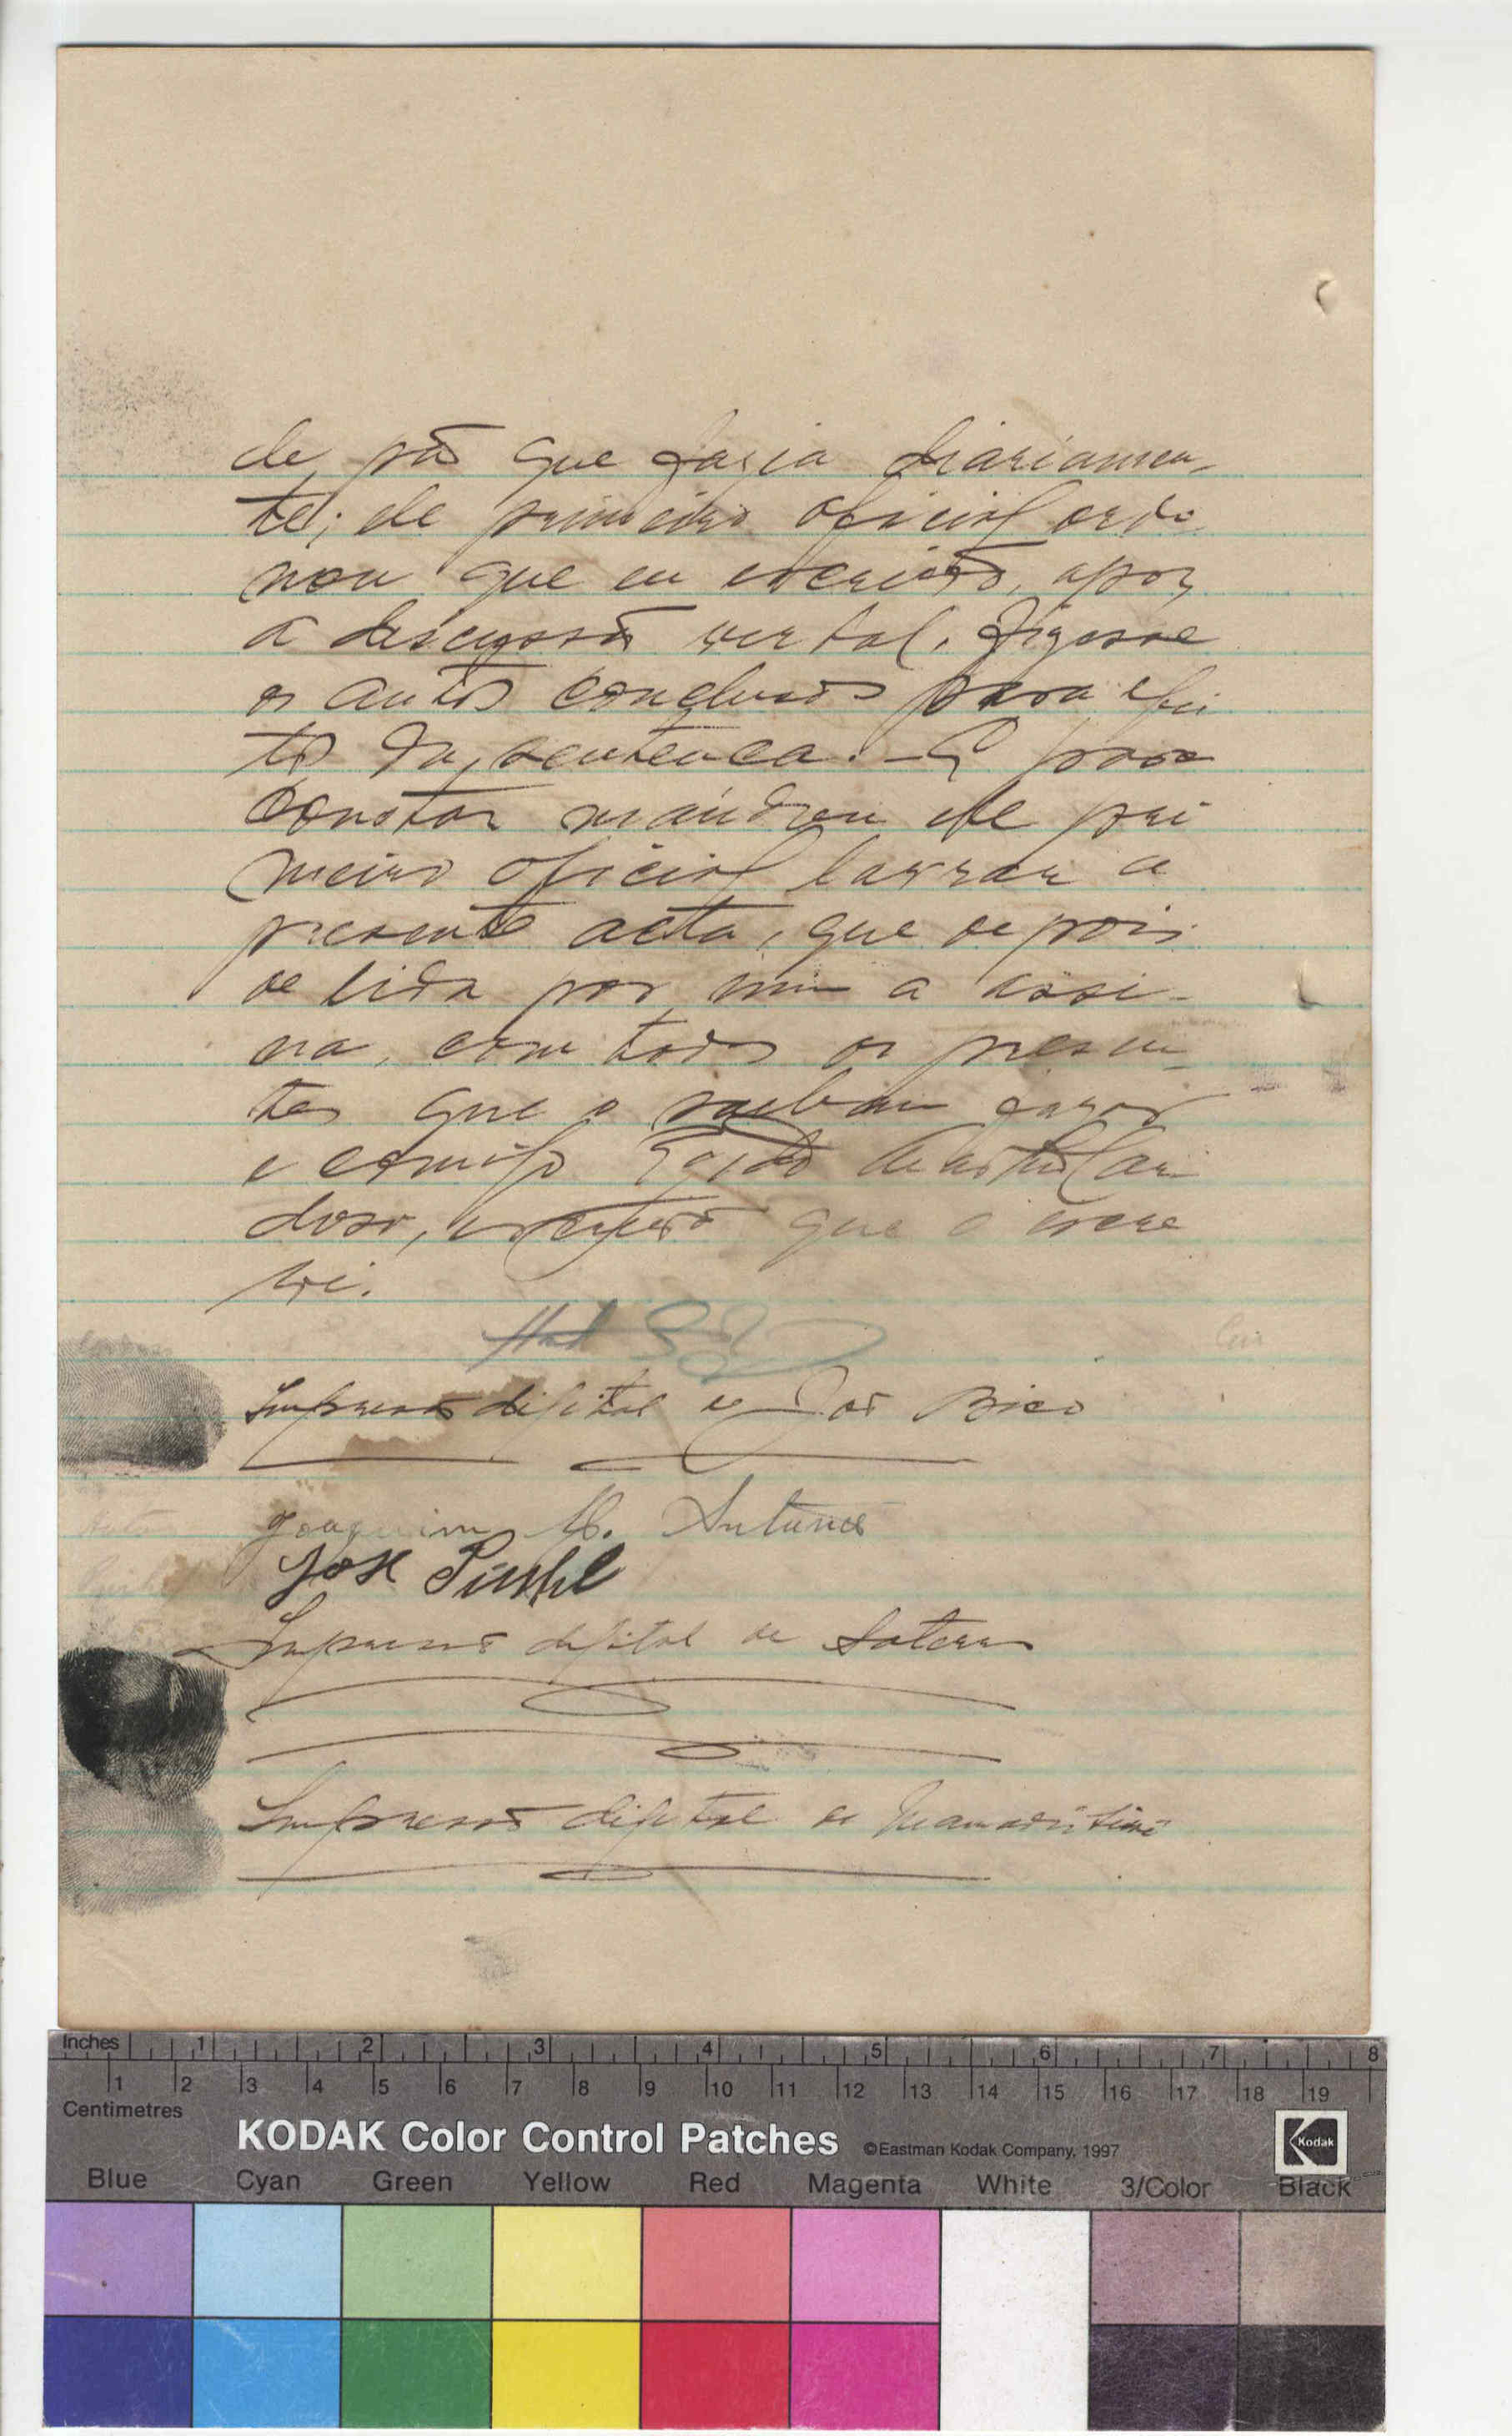 de pão que fazia diariamen-
te; ele primeiro oficial orde
nou que eu escrivão, apoz
a discussão verbal, fizesse
os autos conclusos para efei
to da sentença. — E para
constar mandou ele pri
meiro oficial lavrar a
presente acta, que depois
de lida por mim a assi-
na, com todos os presen-
tes que o saibam fazer
e comigo Car
doso, escrivão que o escre
vi.
Impressão digital de José Bico
Joaquim M. Antunes
José
Impressão digital de
Impressão digital de
Inches 1 2 3 4 5 6 7 8
1 2 3 4 5 6 7 8 9 10 11 12 13 14 15 16 17 18 19
Centimetres
KODAK Color Control Patches ©Eastman Kodak Company, 1997 Kodak
Blue Cyan Green Yellow Red Magenta White 3/Color Black